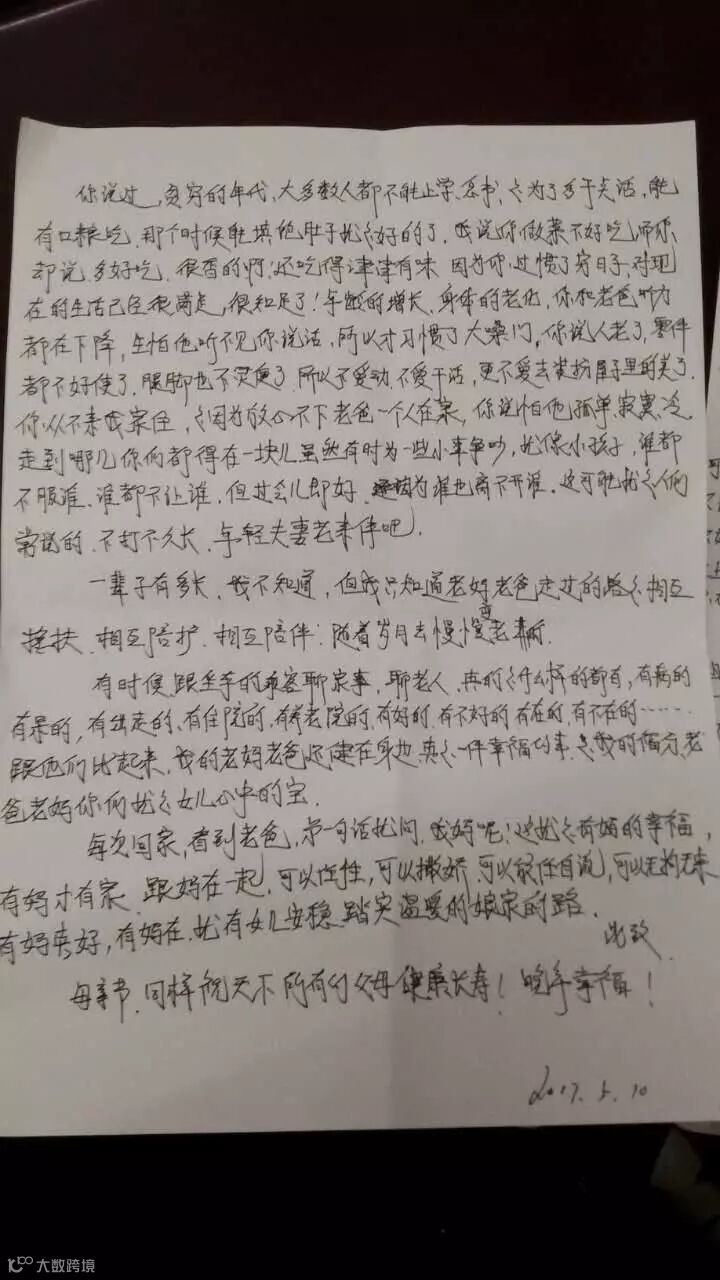 你说过,贫穷的年代,大多数人都不能上学、念书,是为了多干点活,能
有口粮吃,那个时候能填饱肚子就是好的了。我说你做菜不好吃,而你
却说,多好吃,很香的啊!还吃得津津有味,因为你过惯了穷日子,对现
在的生活已经很满足,很知足了!年龄的增长,身体的老化,你和老爸听力
都在下降,生怕他听不见你说话,所以才习惯了大嗓门,你说人老了,零件
都不好使了,腿脚也不灵便了,所以不爱动,不爱干活,更不爱去装扮屋子里的美了。
你从不来我家住,是因为放心不下老爸一个人在家,你说怕他孤单,寂寞,冷
走到哪儿你俩都得在一块儿虽然有时为一些小事争吵,就像小孩子,谁都
不服谁,谁都不让谁,但过会儿即好,因为谁也离不开谁,这可能就是人们
常说的,不打不久长,年轻夫妻老来伴吧!
一辈子有多长,我不知道,但我只知道老妈老爸走过的路是相互
搀扶、相互陪护、相互陪伴,随着岁月去慢慢变老
有时候跟坐车的乘客聊家事,聊老人,真的是什么样的都有,有病的
有呆的,有出走的,有住院的,有养老院的,有好的,有不好的,有在的,有不在的……
跟他们比起来,我的老妈老爸还健在身边,真是一件幸福的事,是我的福分,老
爸老妈你们就是女儿心中的宝.
每次回家,看到老爸,第一句话就问,我妈呢!这就是有妈的幸福,
有妈才有家,跟妈在一起,可以任性,可以撒娇,可以放任自流,可以无拘无束
有妈真好,有妈在,就有女儿安稳、踏实温暖的娘家的路.
此致
母亲节,同样祝天下所有的父母健康长寿!晚年幸福!
2017.5.10
大数跨境